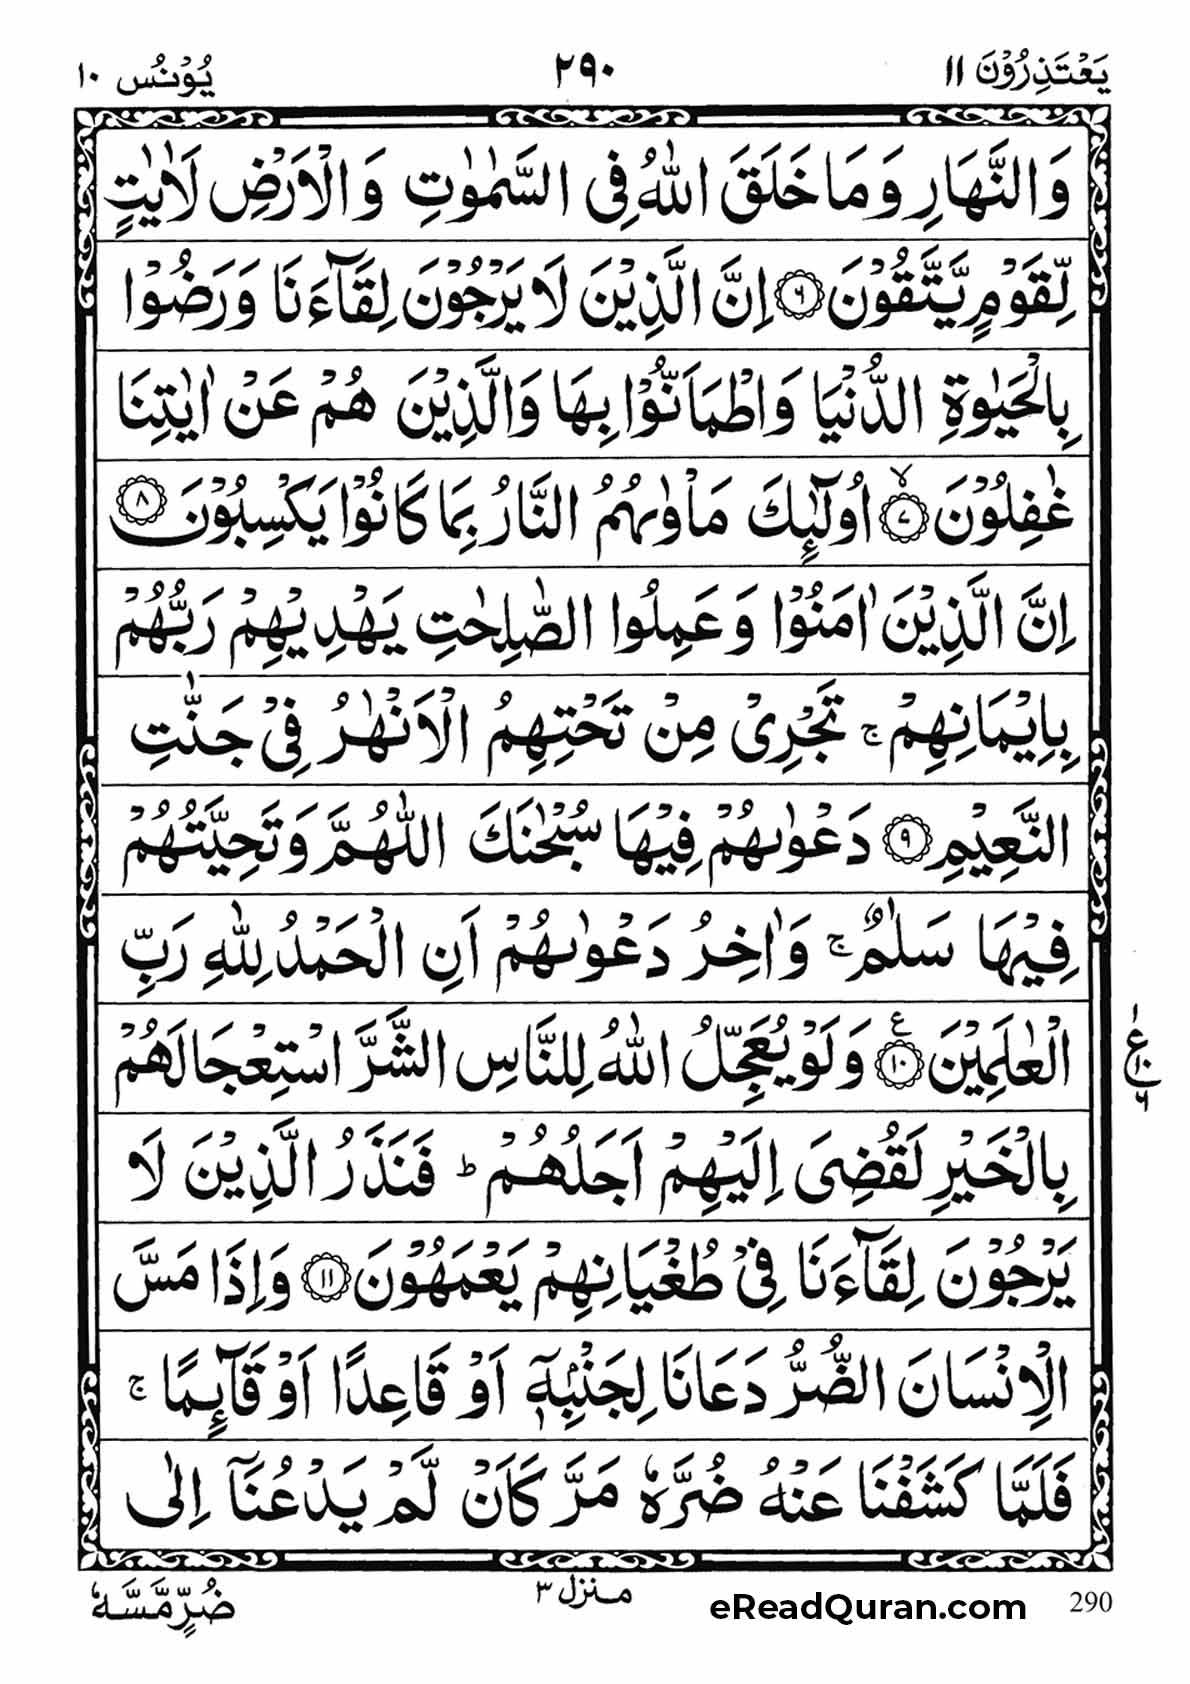 يَعْتَذِرُوْنَ ١١
٢٩٠
يُوْنُس ١٠
وَالنَّهَارِ وَمَا خَلَقَ اللّٰهُ فِى السَّمٰوٰتِ وَالْاَرْضِ لَاٰيٰتٍ
لِّقَوْمٍ يَّتَّقُوْنَ ۝٦ اِنَّ الَّذِيْنَ لَا يَرْجُوْنَ لِقَآءَنَا وَرَضُوْا
بِالْحَيٰوةِ الدُّنْيَا وَاطْمَاَنُّوْا بِهَا وَالَّذِيْنَ هُمْ عَنْ اٰيٰتِنَا
غٰفِلُوْنَ ۝٧ ۙ اُولٰٓئِكَ مَاْوٰىهُمُ النَّارُ بِمَا كَانُوْا يَكْسِبُوْنَ ۝٨
اِنَّ الَّذِيْنَ اٰمَنُوْا وَعَمِلُوا الصّٰلِحٰتِ يَهْدِيْهِمْ رَبُّهُمْ
بِاِيْمَانِهِمْ ۚ تَجْرِىْ مِنْ تَحْتِهِمُ الْاَنْهٰرُ فِىْ جَنّٰتِ
النَّعِيْمِ ۝٩ دَعْوٰىهُمْ فِيْهَا سُبْحٰنَكَ اللّٰهُمَّ وَتَحِيَّتُهُمْ
فِيْهَا سَلٰمٌ ۚ وَاٰخِرُ دَعْوٰىهُمْ اَنِ الْحَمْدُ لِلّٰهِ رَبِّ
الْعٰلَمِيْنَ ۝١٠ ع وَلَوْ يُعَجِّلُ اللّٰهُ لِلنَّاسِ الشَّرَّ اسْتِعْجَالَهُمْ
١ ع ١٠ ٦
بِالْخَيْرِ لَقُضِىَ اِلَيْهِمْ اَجَلُهُمْ ؕ فَنَذَرُ الَّذِيْنَ لَا
يَرْجُوْنَ لِقَآءَنَا فِىْ طُغْيَانِهِمْ يَعْمَهُوْنَ ۝١١ وَاِذَا مَسَّ
الْاِنْسَانَ الضُّرُّ دَعَانَا لِجَنْۢبِهٖۤ اَوْ قَاعِدًا اَوْ قَآئِمًا ۚ
فَلَمَّا كَشَفْنَا عَنْهُ ضُرَّهٗ مَرَّ كَاَنْ لَّمْ يَدْعُنَاۤ اِلٰى
ضُرٍّ مَّسَّهٗ
منزل ٣
eReadQuran.com
290